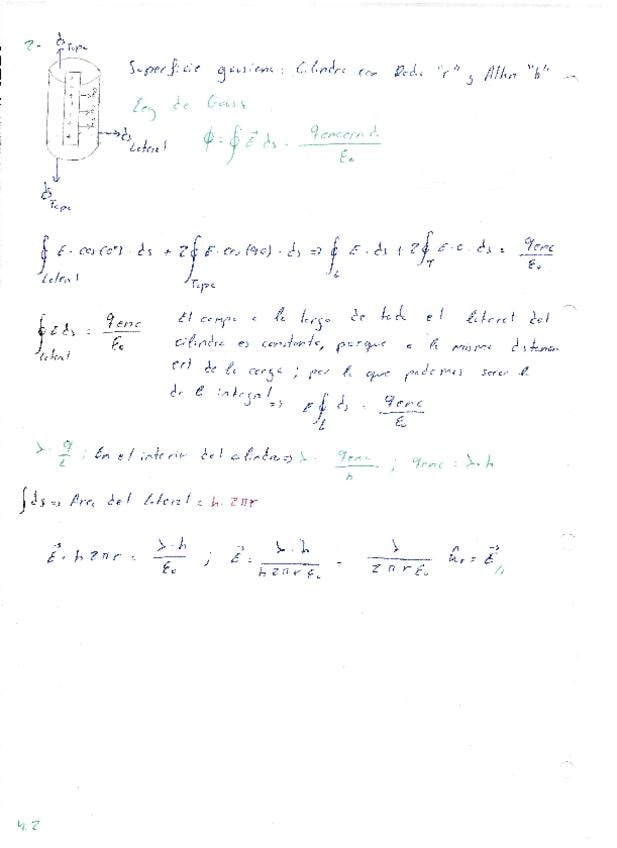 2-
ds Tapa
Superficie gausiana: Cilindro con Radio "r" y Altura "h"
Ley de Gauss
ds Lateral
Φ = ∮ E⃗ ds = qencerrada / ε₀
ds Tapa
∮Lateral E · cos(0°) · ds + 2∮Tapa E · cos(90) · ds => ∮L E · ds + 2∮T E · 0 · ds = qenc / ε₀
∮Lateral E ds = qenc / ε₀
El campo a lo largo de todo el lateral del
cilindro es constante, porque a la misma distancia
est de la carga; por lo que podemos sacar la
de la integral => E ∮L ds = qenc / ε₀
λ = q / L ; En el interior del cilindro => λ = qenc / h ; qenc = λ · h
∫ds => Area del lateral = h · 2πr
E⃗ · h 2πr = λ · h / ε₀ ; E⃗ = λ · h / h 2πr ε₀ = λ / 2πr ε₀ ûr = E⃗ //
4.2